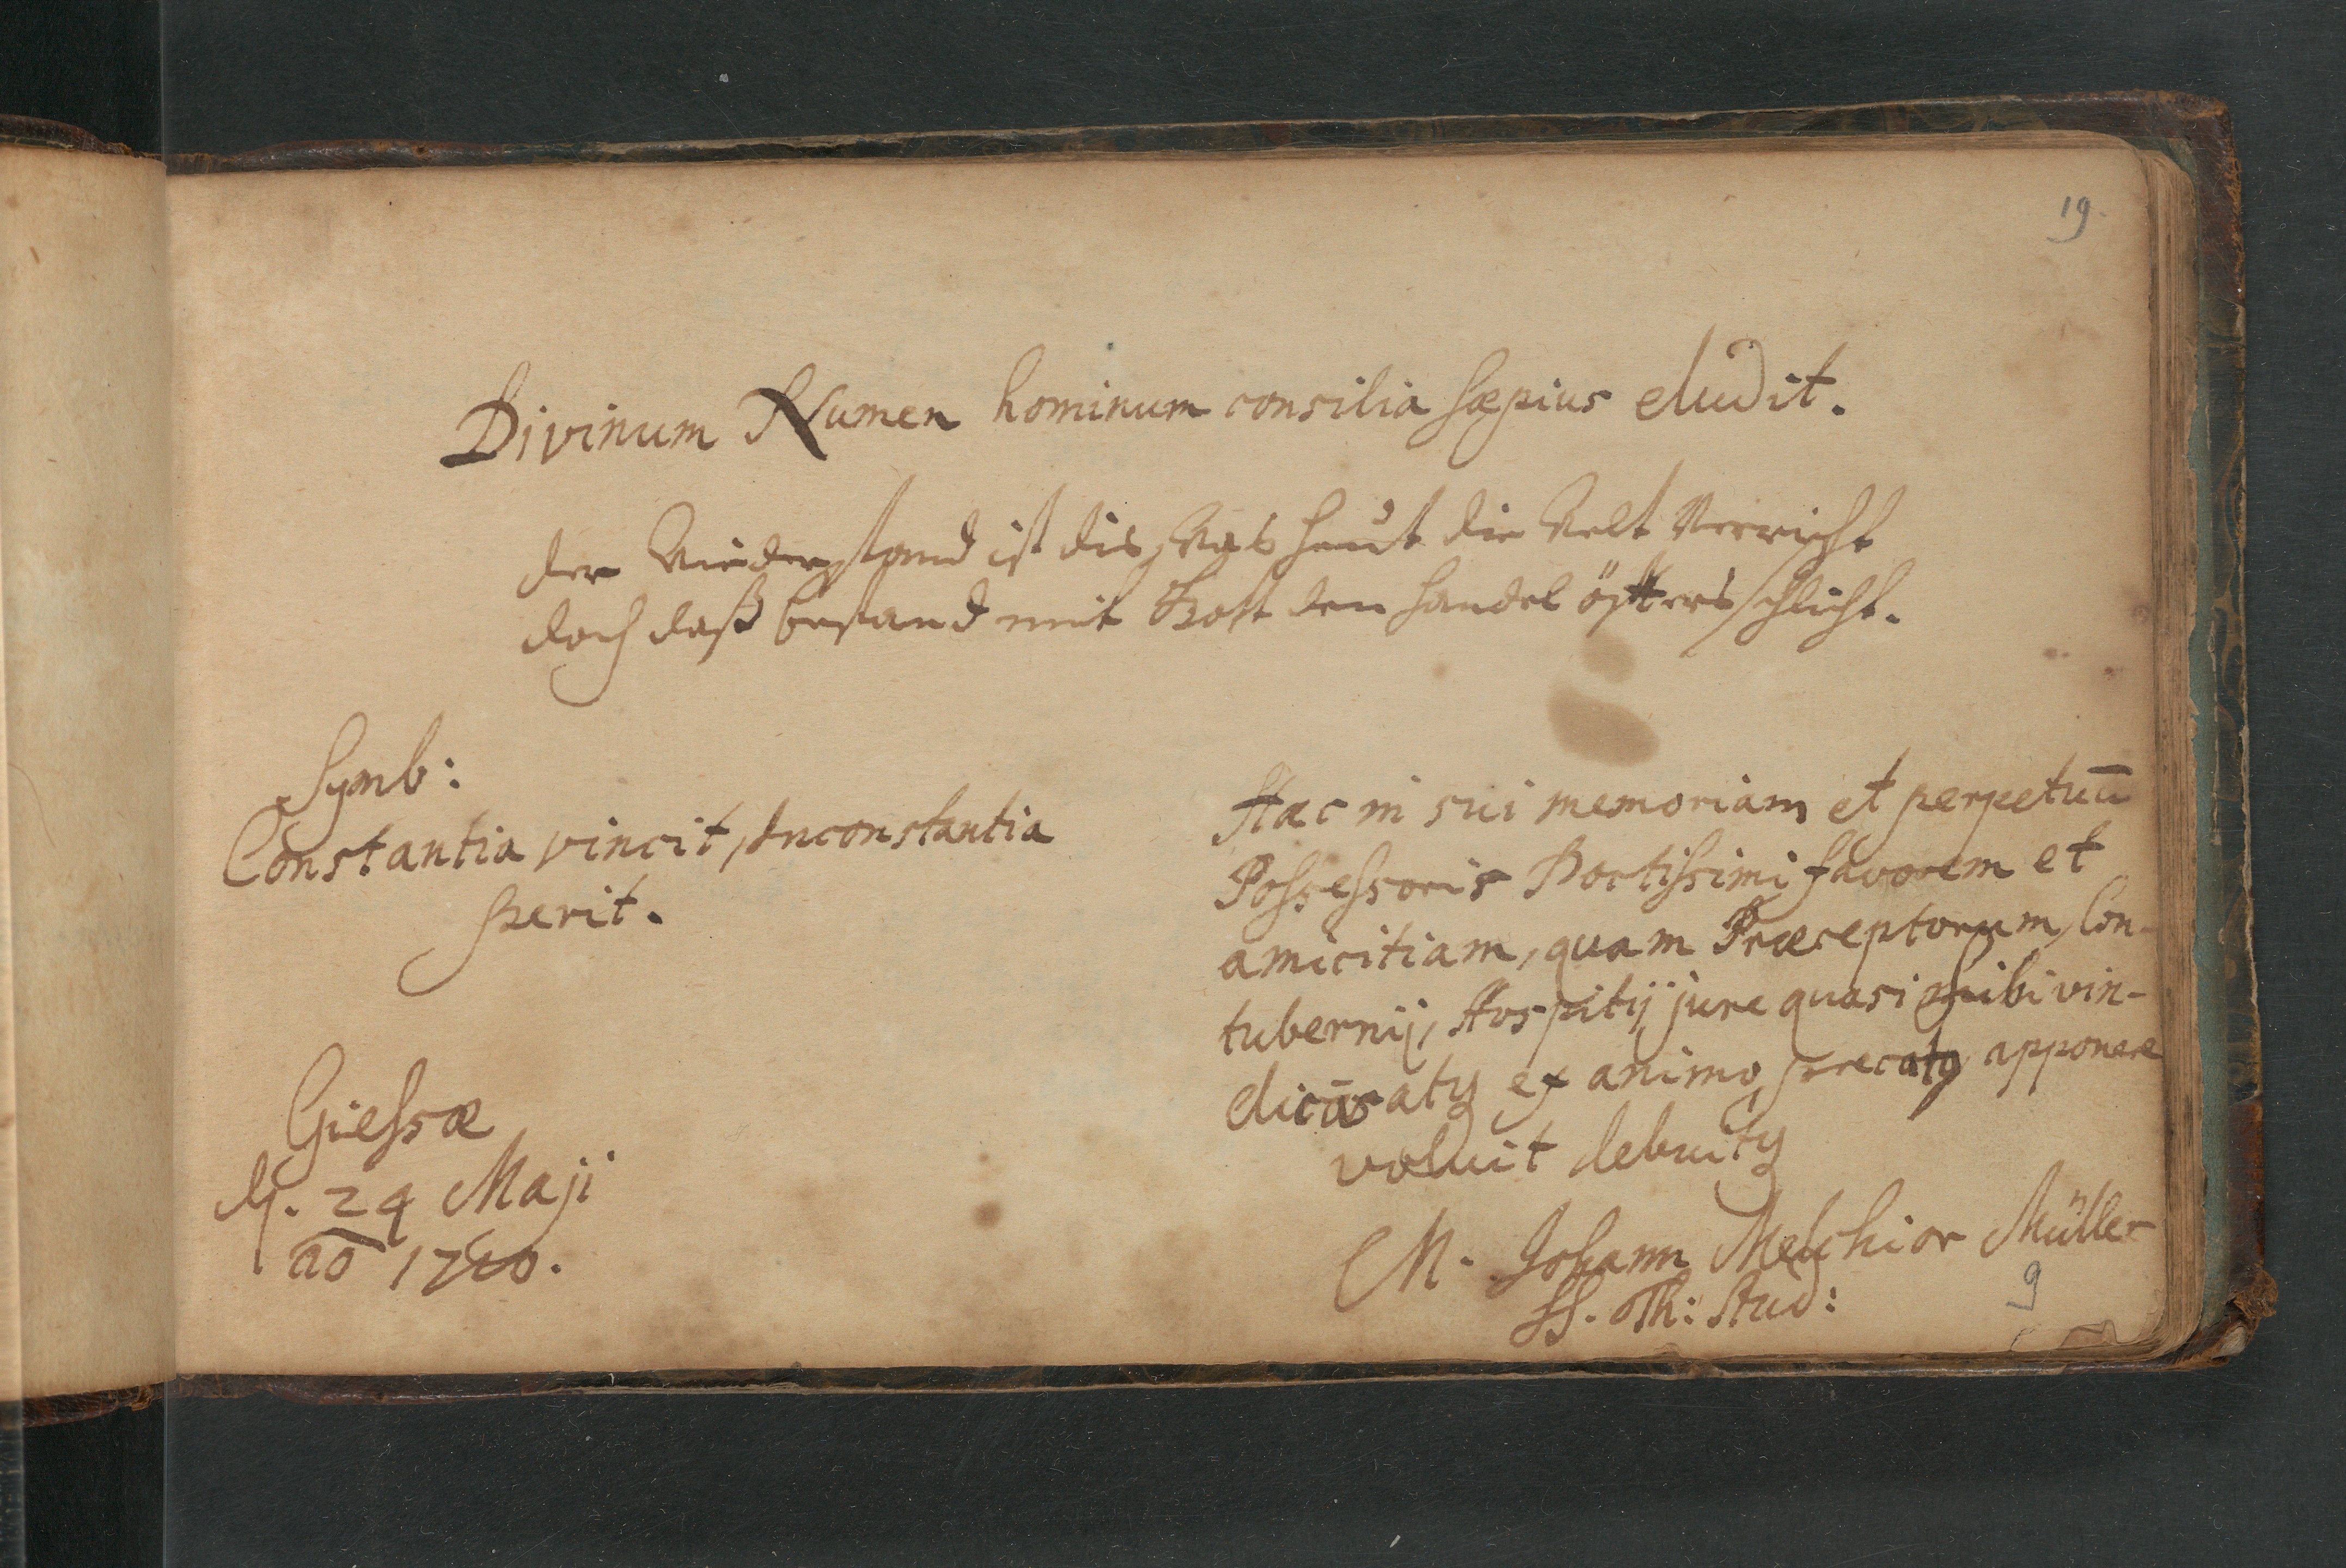 19.
Divinum Numen hominum consilia sæpius eludit.
der Wiederstand ist dis, Was heut die Welt Verricht
doch daß bestand mit Gott den handel öfters schlicht.
Symb:
Constantia vincit, Inconstantia
perit.
Giessæ
d. 24 Maji
ao 1720.
Hæc in sui memoriam et perpetuū
Possessoris Doctissimi favorem et
amicitiam, quam Præceptorum, Con-
tubernij, Hospitij jure quasi sibi vin-
ex animo precatq apponere
voluit debuitq
M. Johann Melchior Müller
SS. Th: Stud:
9